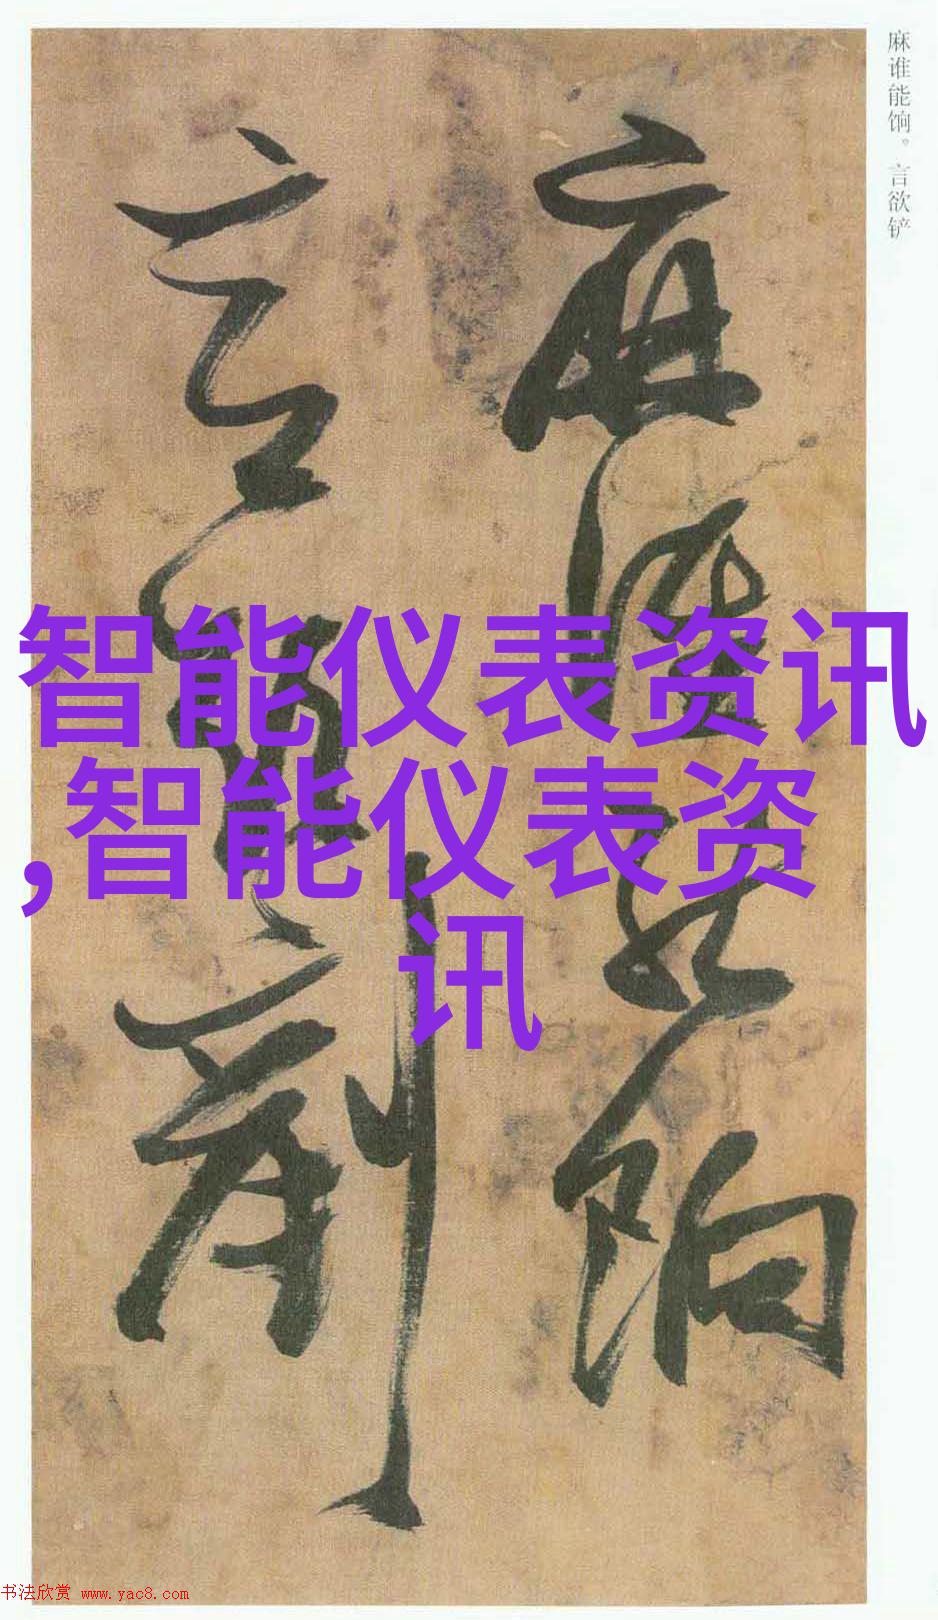 麻谁能饷。言欲铲
麻谁能饷
言欲剷
智能仪表资讯
,智能仪表资
讯
书法欣赏 www.yac8.com